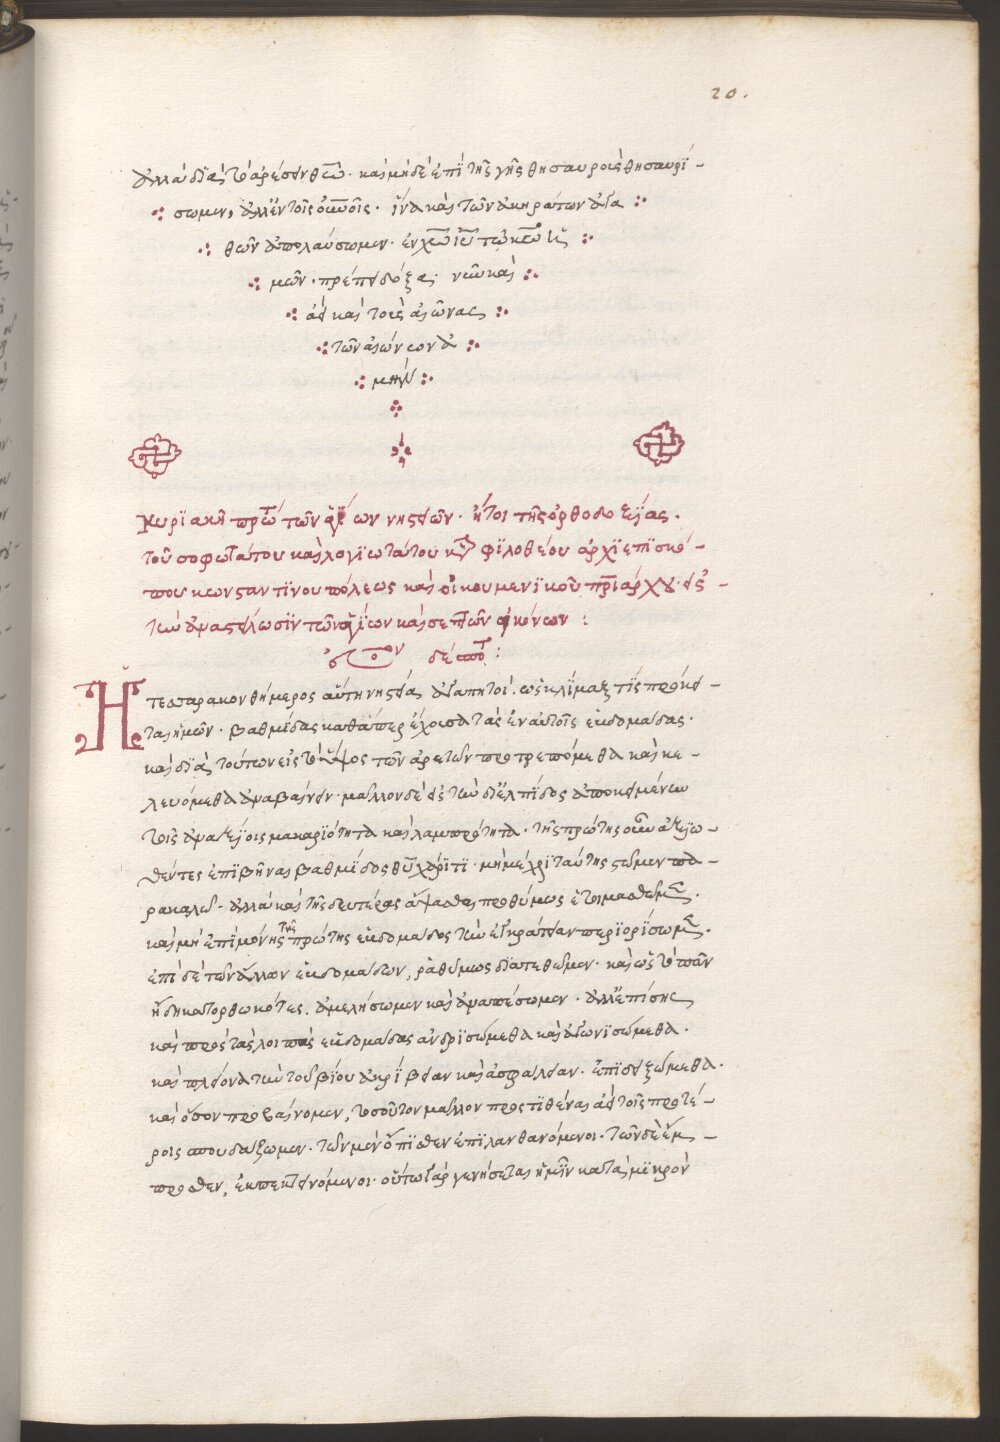 20.
ἀλλὰ διὰ τὸ ἀρέσειν θεῷ. καὶ μηδὲ ἐπὶ τῆς γῆς θησαυροὺς θησαυρί-
σωμεν, ἀλλ' ἐν τοῖς οὐνοῖς. ἵνα καὶ τῶν ἀκηράτων ἀγα
θῶν ἀπολαύσωμεν. ἐν χῶ ἰῦ τῷ κῶ ἡ
μῶν. πρέπει δόξα. νῦν καὶ
ἀεὶ καὶ τοὺς αἰῶνας
τῶν αἰώνων ἀ
μήν
Κυριακῆ πρώτ τῶν ἁγίων νηστῶν. ἤτοι τῆς ὀρθοδοξίας.
τοῦ σοφωτάτου καὶ λογιωτάτου κυ φιλοθέου ἀρχιεπισκό-
που κωνσταντινουπόλεως καὶ οἰκουμενικοῦ πριάρχου. εἰς
τὴν ἀναστήλωσιν τῶν ἁγίων καὶ σεπτῶν εἰκόνων :
δέσποτ :
Ἡ τεσσαρακονθήμερος αὕτη νηστεία, ἀγαπητοί. ὡς κλίμαξ τίς πρόκει-
ται ἡμῶν. βαθμίδας καθάπερ ἔχουσα τὰς ἐν αὐτοῖς εὐδομάδας.
καὶ διὰ τούτων εἰς τὸ ὕψος τῶν ἀρετῶν προτρεπόμεθα καὶ κε-
λευόμεθα ἀναβαίνειν. μᾶλλον δὲ εἰς τὴν δι' ἐλπίδος ἀποκειμένην
τοῖς ἀναξίοις μακαριότητα καὶ λαμπρότητα. τῆς πρώτης οὖν ἀξιω-
θέντες ἐπιβῆναι βαθμίδος θῦ χάριτι. μὴ μέχρι ταύτης στῶμεν πα-
ρακαλῶ. ἀλλὰ καὶ τῆς δευτέρας ἅψασθαι προθύμως ἑτοιμασθῶμεν.
καὶ μὴ ἐπὶ μόνης τῆς πρώτης εὐδομάδος τὴν ἐγκράτειαν περιορίσωμεν.
ἐπὶ δὲ τῶν ἄλλων εὐδομάδων, ῥαθύμως διατεθῶμεν. καὶ ὡς τὸ πᾶν
ἤδη κατορθωκότες. ἀμελήσωμεν καὶ ἀναπέσωμεν. ἀλλ' ἐπίσης
καὶ πρὸς τὰς λοιπὰς εὐδομάδας ἀνδρισώμεθα καὶ ἀγωνισώμεθα.
καὶ πλείονα τὴν τοῦ βίου ἀκρίβειαν καὶ ἀσφάλειαν. ἐπιδειξώμεθα.
καὶ ὅσον προβαίνομεν, τοσοῦτον μᾶλλον προστιθέναι ἀεὶ τοῖς προτέ-
ροις σπουδάζωμεν. τῶν μὲν ὄπισθεν ἐπιλανθανόμενοι. τῶν δὲ ἔμ-
προσθεν, ἐκπεκτεινόμενοι. οὕτω γὰρ γενήσεται ἡμῖν κατὰ μικρὸν